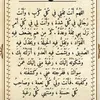 اللهم أنت ثقتي في كل كرب، وأنت
رجائي في كل شدة، وأنت لي في كل أمر
نزل بي ثقة وعدة، كم من هم يضعف فيه
الفؤاد، وتقل فيه الحيلة، ويخذل فيه
الصديق، ويشمت فيه العدو، أنزلته بك
وشكوته إليك، رغبة مني إليك عمن
سواك، ففرجته عني، وكشفته،
فأنت ولي كل نعمة، وصاحب
كل حسنة، ومنتهى كل رغبة